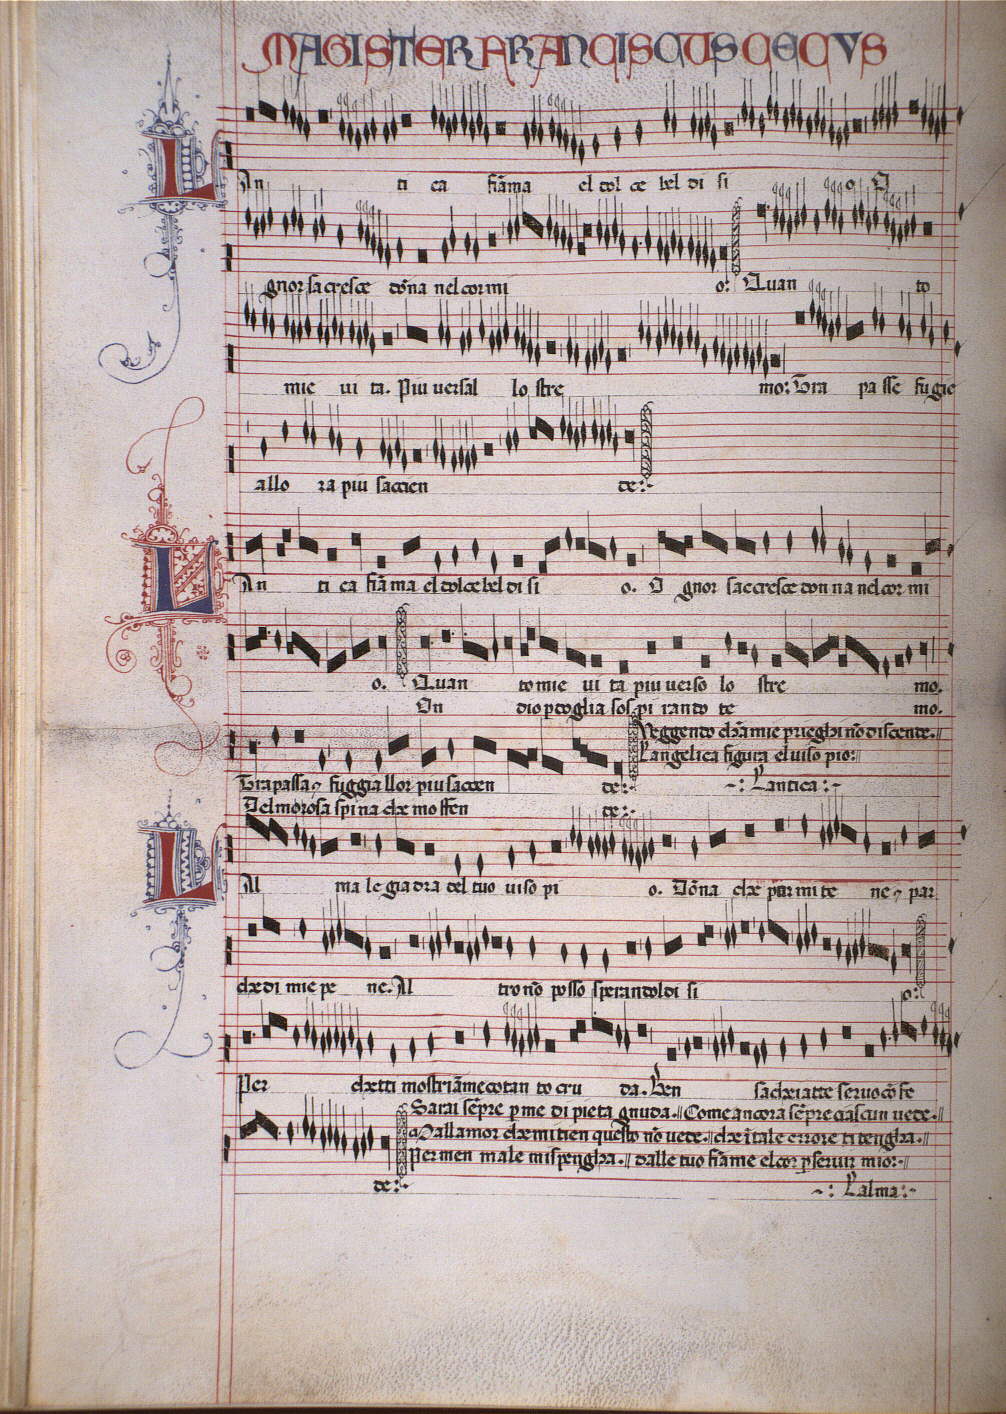 MAGISTER FRANCISCUS CECVS
LAn ti ca fiāma el dol ce bel di si o. O
gnor sa cresce dōna nel cor mi o: Quan to
mie ui ta. Piu uersal lo stre mo: Tra pa sse fugie
allo ra piu saccen de:
LAn ti ca fiāma el dolce bel di si o. O gnor saccresce don na nel cor mi
o. Quan to mie ui ta piu uerso lo stre mo.
On dio p doglia sospi rando te mo.
Veggendo ch̄a mie prieghi nō discende.
Langelica figura el uiso pio:
Trapassa 7 fuggia llor piu saccen de: Lantica:
Delmorosa spina che moffen de:
LAl ma le gia dra del tuo uiso pi o. Dōna che par mi te ne 7 par
che di mie pe ne. Al tro nō posso speran dol di si o:
Per chetti mostriāme cotan to cru da. Ben sacheiatte seruo cō fe
Sarai sēpre p me di pieta gnuda. Come ancora sēpre ciascun uede.
Dallamor che mi tien questo nō uede. che ī tale errore ti tengha.
Per men male mi spengha. dalle tuo fiāme el cor p seruir mio:
de: Lalma: